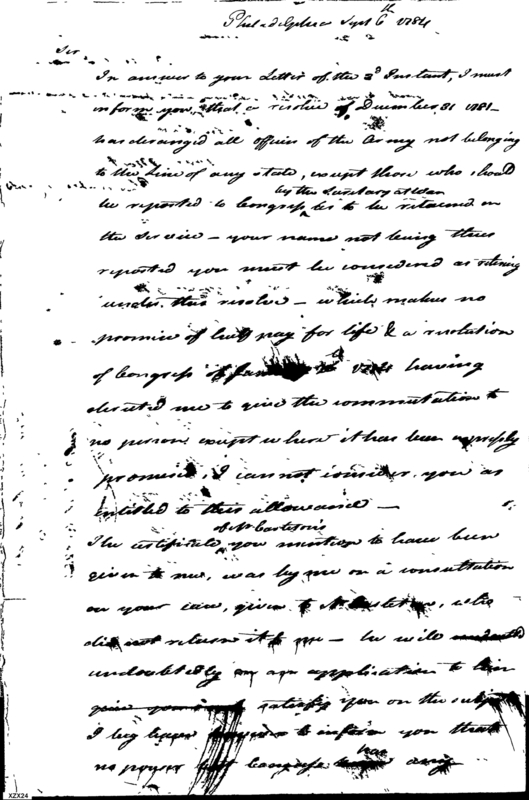 Philadelphia Sept 6th 1784
Sir
In answer to your Letter of the 2d Instant, I must
inform you, that a resolve of December 31 1781
has deranged all officers of the Army not belonging
to the Line of any state, except those who should
by the Secretary at War
be reported to Congress as to be retained in
the Service – your name not being thus
reported you must be considered as retiring
under this resolve – which makes no
promise of half pay for life & a resolution
of Congress of 1784 having
directed me to give the commutation to
no person except where it has been expressly
promised, I cannot consider you as
entitled to this allowance –
of Mr Carletons
The certificate you mention to have been
given to me, was by me on a consultation
on your case, given to Mr Carleton, who
did not return it to me – he will
undoubtedly on an application to him
give you satisfy you on the subject
I beg leave to inform you that
has
no power but Congress any
XZX24